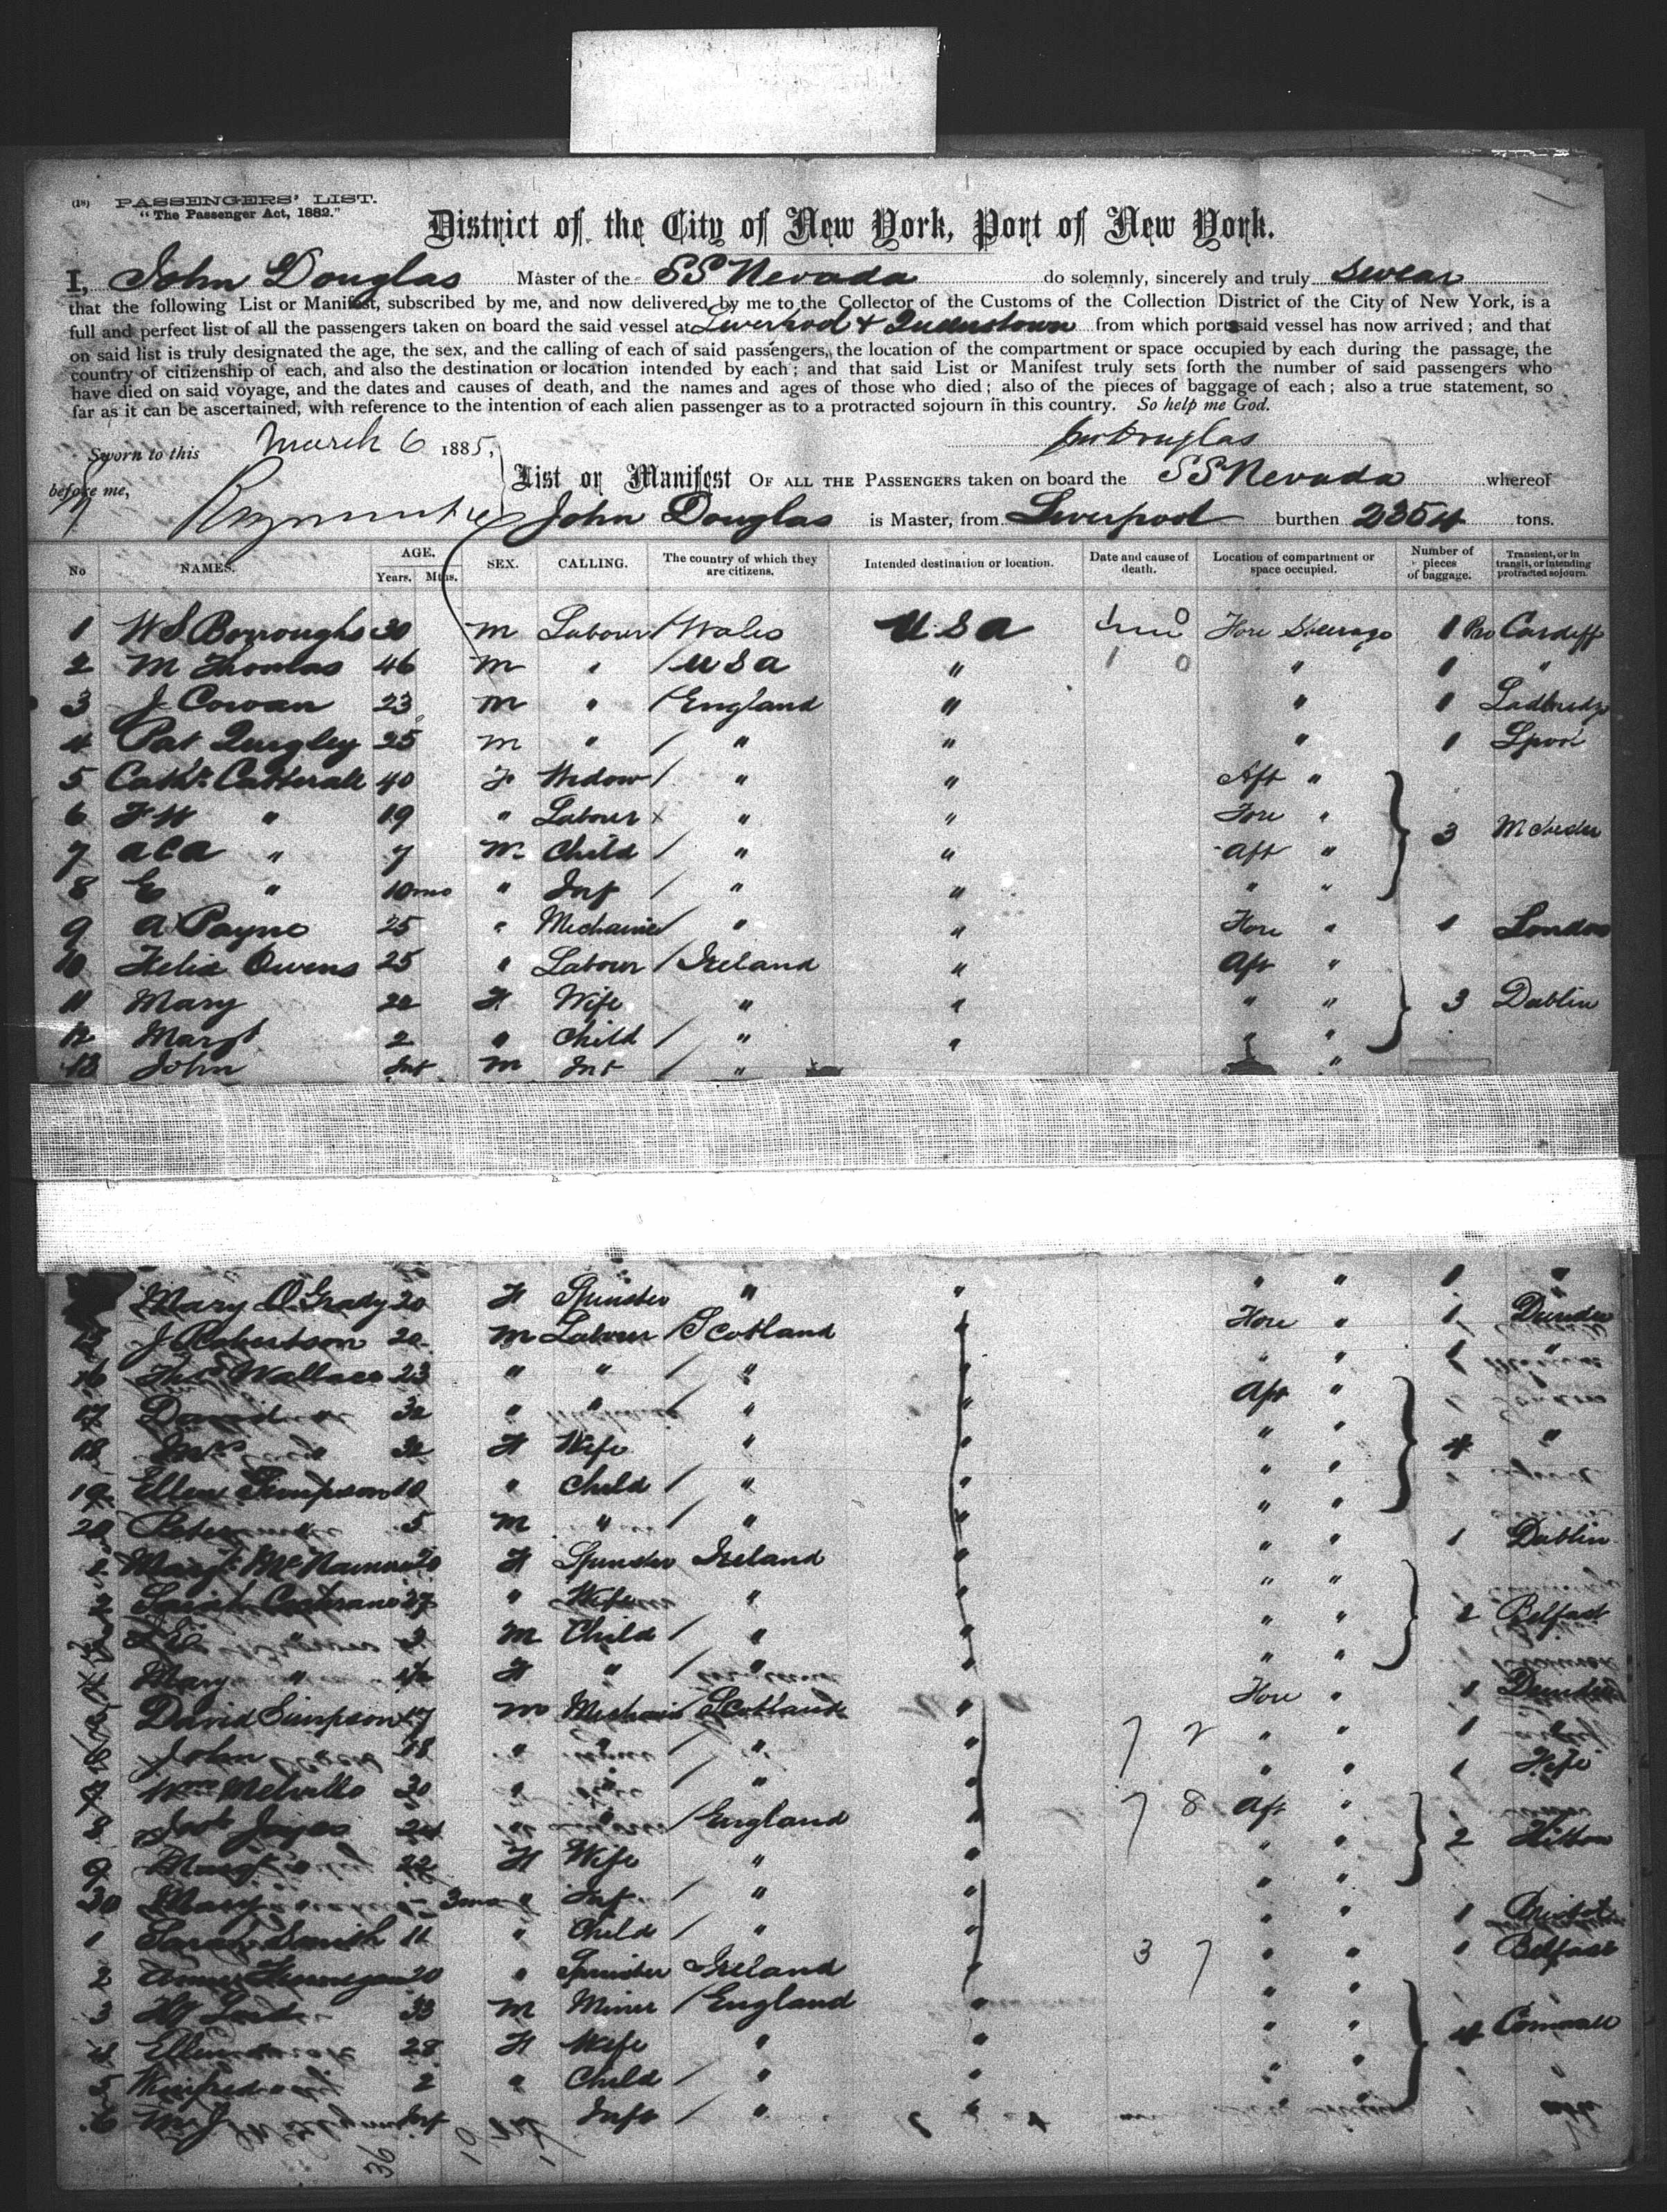 (18) PASSENGERS' LIST.
"The Passenger Act, 1882."
District of the City of New York, Port of New York.
I, John Douglas Master of the SS Nevada do solemnly, sincerely and truly swear
that the following List or Manifest, subscribed by me, and now delivered by me to the Collector of the Customs of the Collection District of the City of New York, is a
full and perfect list of all the passengers taken on board the said vessel at Liverpool & Queenstown from which port said vessel has now arrived; and that
on said list is truly designated the age, the sex, and the calling of each of said passengers, the location of the compartment or space occupied by each during the passage, the
country of citizenship of each, and also the destination or location intended by each; and that said List or Manifest truly sets forth the number of said passengers who
have died on said voyage, and the dates and causes of death, and the names and ages of those who died; also of the pieces of baggage of each; also a true statement, so
far as it can be ascertained, with reference to the intention of each alien passenger as to a protracted sojourn in this country. So help me God.
Sworn to this March 6 1885, Jno Douglas
before me,
List or Manifest OF ALL THE PASSENGERS taken on board the SS Nevada whereof
John Douglas is Master, from Liverpool burthen 2354 tons.
No NAMES. AGE. Years. Mths. SEX. CALLING. The country of which they are citizens. Intended destination or location. Date and cause of death. Location of compartment or space occupied. Number of pieces of baggage. Transient, or in transit, or intending protracted sojourn.
1 W S Borroughs 30 m Labour / Wales USA Fore Steerage 1 Pro Cardiff
2 M Thomas 46 m " / USA " " 1 "
3 J Cowan 23 m " / England " " 1
4 Pat Quigley 25 m " / " " " 1 Lpool
5 Cath. Catterall 40 F Widow / " " Aft "
6 F W " 19 " Labour x " " Fore " 3 M chester
7 A C A " 7 m. Child / " " Aft "
8 E " 10mo " Inf / " " " "
9 A Payne 25 " Mechanic / " " Fore " 1 London
10 Felix Owens 25 " Labour / Ireland " Aft "
11 Mary 22 F Wife " " " " 3 Dublin
12 Margt 2 " Child / " " " "
13 John Inf m Inf / " "
Mary O'Grady 20 F Spinster " " " " 1 "
15 J Robertson 20 m Labour / Scotland " Fore " 1 Dundee
16 Thos Wallace 23 " " / " " " " 1 "
17 David " 32 " " / " " Aft "
18 Mrs " 32 F Wife " " " " 4 "
19 Ellen Simpson 10 " Child / " " " "
20 Peter 5 m " / " " " "
Margt McNamara 20 F Spinster Ireland " " " 1 Dublin
Sarah Cochrane 27 " Wife " " " "
" m Child / " " " " 2 Belfast
Mary " F " / " " " "
David Simpson 17 m Mechanic / Scotland " Fore " 1 Dundee
6 John 18 " " / " " 7 2 " " 1 "
7 Wm Melville 30 " " / " " " " 1 Fife
8 24 " / England " 7 8 Aft "
9 Margt " 22 F Wife " " " " 2
30 Mary 3mo " Inf. / " " " "
1 Sarah Smith 11 " Child / " " " " 1 Bristol
2 Annie 20 " Spinster Ireland " 3 7 " " 1 Belfast
3 Hy 33 m Miner / England " " "
4 Ellen 28 F Wife " " " " 4 Cornwall
5 Winifred 2 " Child / " " " "
6 M J Inf Inft / " "
36